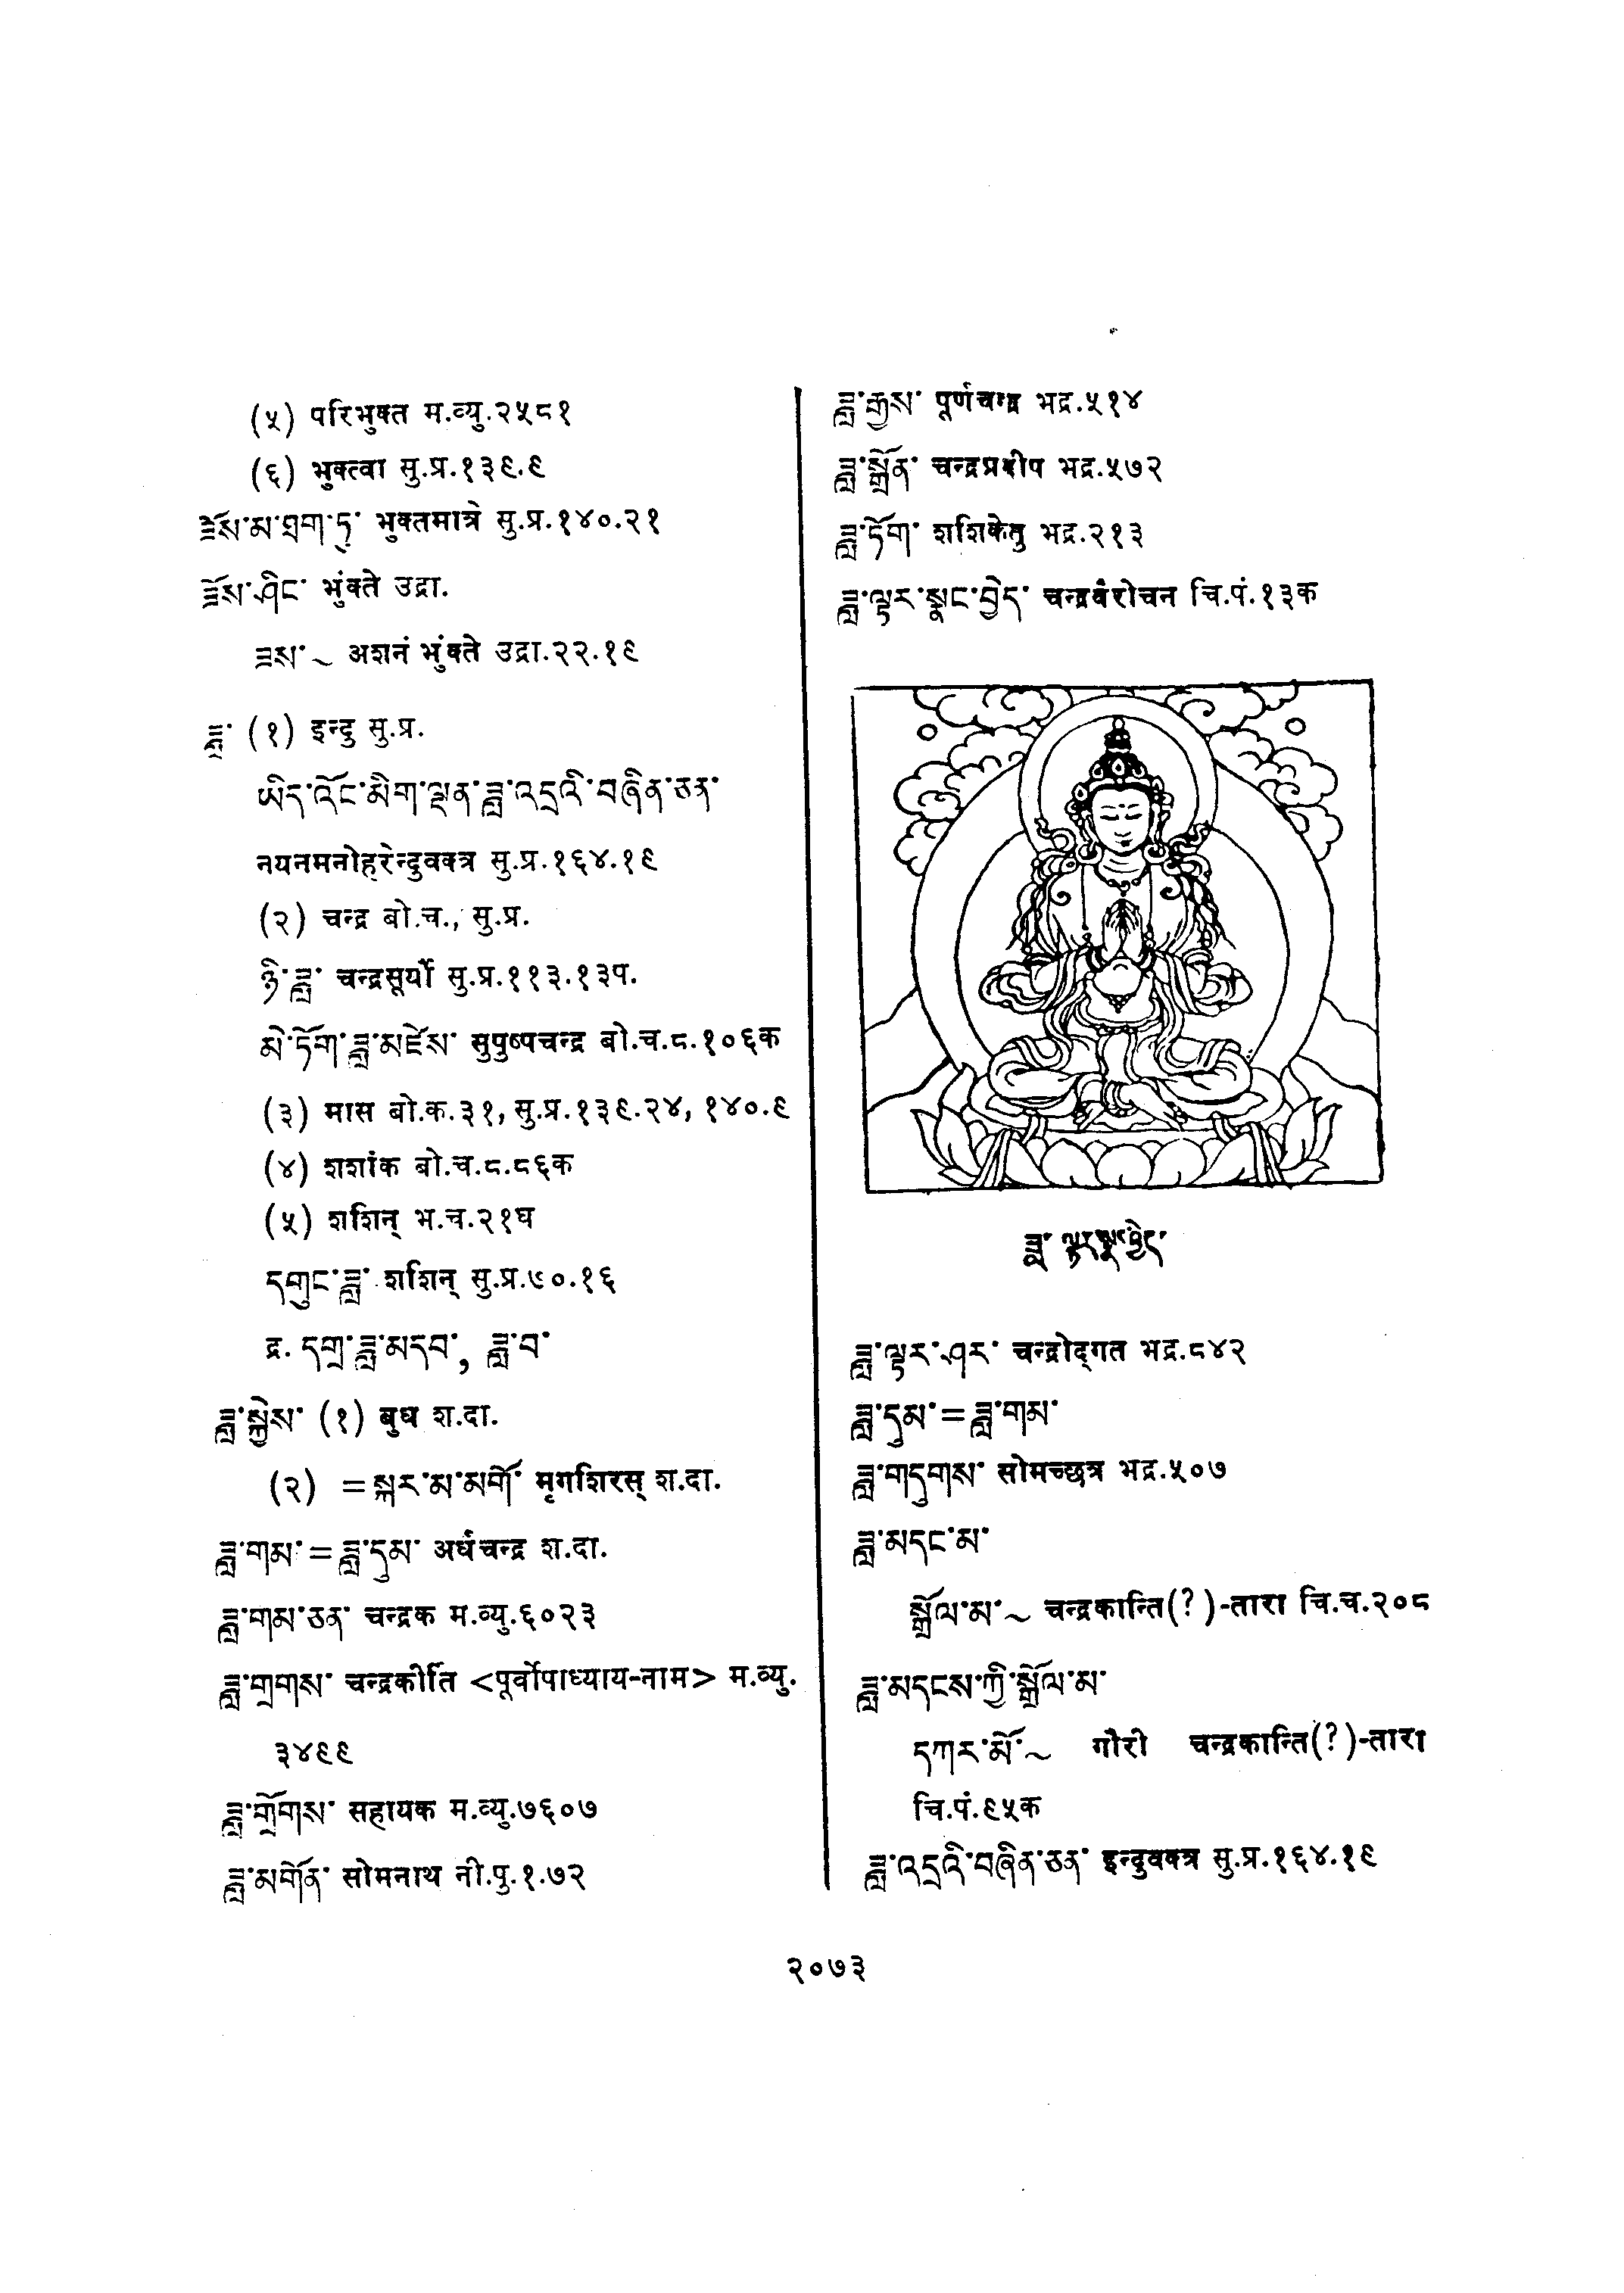 (५) परिभुक्त म.व्यु.२५८१
(६) भुक्त्वा सु.प्र.१३९.९
ཟོས་མ་ཐག་ཏུ་ भुक्तमात्रे सु.प्र.१४०.२१
ཟོས་ཤིང་ भुंक्ते उद्रा.
ཟས་~ अशनं भुंक्ते उद्रा.२२.१९
ཟླ་ (१) इन्दु सु.प्र.
ཡིད་འོང་མིག་ལྡན་ཟླ་འདྲའི་བཞིན་ཅན་
नयनमनोहरेन्दुवक्त्र सु.प्र.१६४.१९
(२) चन्द्र बो.च., सु.प्र.
ཉི་ཟླ་ चन्द्रसूर्यौ सु.प्र.११३.१३प.
མེ་ཏོག་ཟླ་མཛེས་ सुपुष्पचन्द्र बो.च.८.१०६क
(३) मास बो.क.३१, सु.प्र.१३९.२४, १४०.९
(४) शशांक बो.च.८.८६क
(५) शशिन् भ.च.२१घ
དགུང་ཟླ་ शशिन् सु.प्र.७०.१६
द्र. དགྲ་ཟླ་མདབ་, ཟླ་བ་
ཟླ་སྐྱེས་ (१) बुध श.दा.
(२) =སྐར་མ་མགོ་ मृगशिरस् श.दा.
ཟླ་གམ་=ཟླ་དུམ་ अर्धचन्द्र श.दा.
ཟླ་གམ་ཅན་ चन्द्रक म.व्यु.६०२३
ཟླ་གྲགས་ चन्द्रकीर्ति <पूर्वोपाध्याय-नाम> म.व्यु.
३४९९
ཟླ་གྲོགས་ सहायक म.व्यु.७६०७
ཟླ་མགོན་ सोमनाथ नी.पु.१.७२
ཟླ་རྒྱས་ पूर्णचन्द्र भद्र.५१४
ཟླ་སྒྲོན་ चन्द्रप्रदीप भद्र.५७२
ཟླ་ཏོག་ शशिकेतु भद्र.२१३
ཟླ་ལྟར་སྣང་བྱེད་ चन्द्रवैरोचन चि.पं.१३क
ཟླ་ ལྟར་སྣང་བྱེད་
ཟླ་ལྟར་ཤར་ चन्द्रोद्गत भद्र.८४२
ཟླ་དུམ་=ཟླ་གམ་
ཟླ་གདུགས་ सोमच्छत्र भद्र.५०७
ཟླ་མདང་མ་
སྒྲོལ་མ་~ चन्द्रकान्ति(?)-तारा चि.च.२०८
ཟླ་མདངས་ཀྱི་སྒྲོལ་མ་
དཀར་མོ་~ गौरी चन्द्रकान्ति(?)-तारा
चि.पं.९५क
ཟླ་འདྲའི་བཞིན་ཅན་ इन्दुवक्त्र सु.प्र.१६४.१९
२०७३